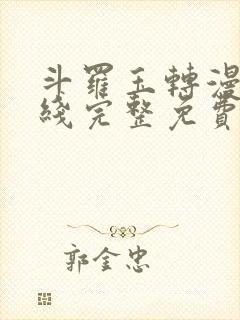 斗羅玉轉漫
綫完整免費
郭金忠